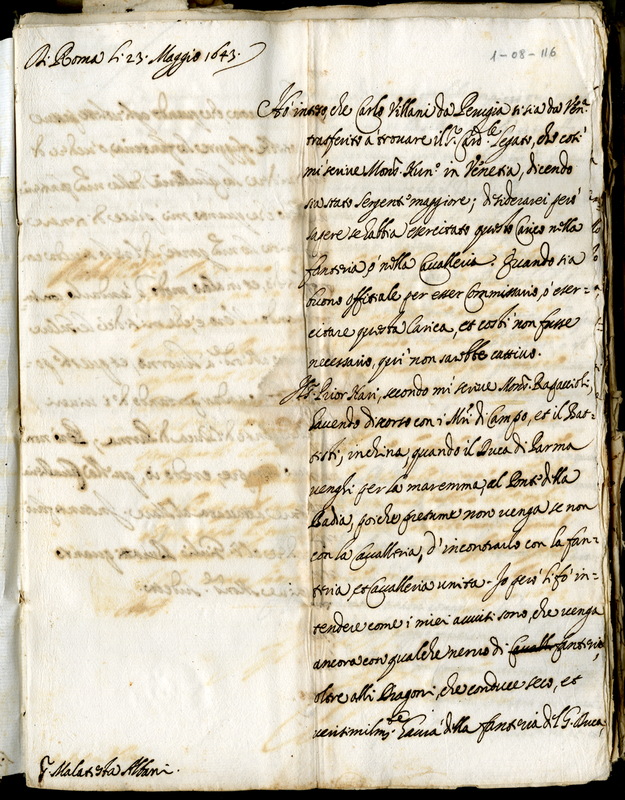 Di Roma li 23. Maggio 1643.
1-08-116
Hò inteso, che Carlo Villani da Perugia si sia da Ven.ª
trasferito a trovare il S.r Card.le Legato, che così
mi scrive Mons.r Nun.o in Venetia, dicendo
sia stato Sergent.e maggiore; desiderarei però
sapere se habbia esercitato questo Carico nella
fanteria ò nella Cavalleria. Quando sia
buono offitiale per esser Commissario, ò eser=
citare questa Carica, et costì non fusse
necessario, qui non sarebbe cattivo.
Il S.r Prior Nari, secondo mi scrive Mons.r Ragaccioli,
havendo discorso con i M.ri di Campo, et il Bat=
tisti, inchina, quando il Duca di Parma
venghi per la maremma, al Ponte della
Badia, poiche presume non venga se non
con la Cavalleria, d'incontrarlo con la fan=
teria, et Cavalleria unita. Io però li fò in=
tendere come i miei avvisi sono, che venga
ancora con qualche nervo di Cavall fanteria,
oltre alli Dragoni, che conduce seco, et
verisimilm.te havrà della fanteria del G. Duca,
S.r Malatesta Albani.